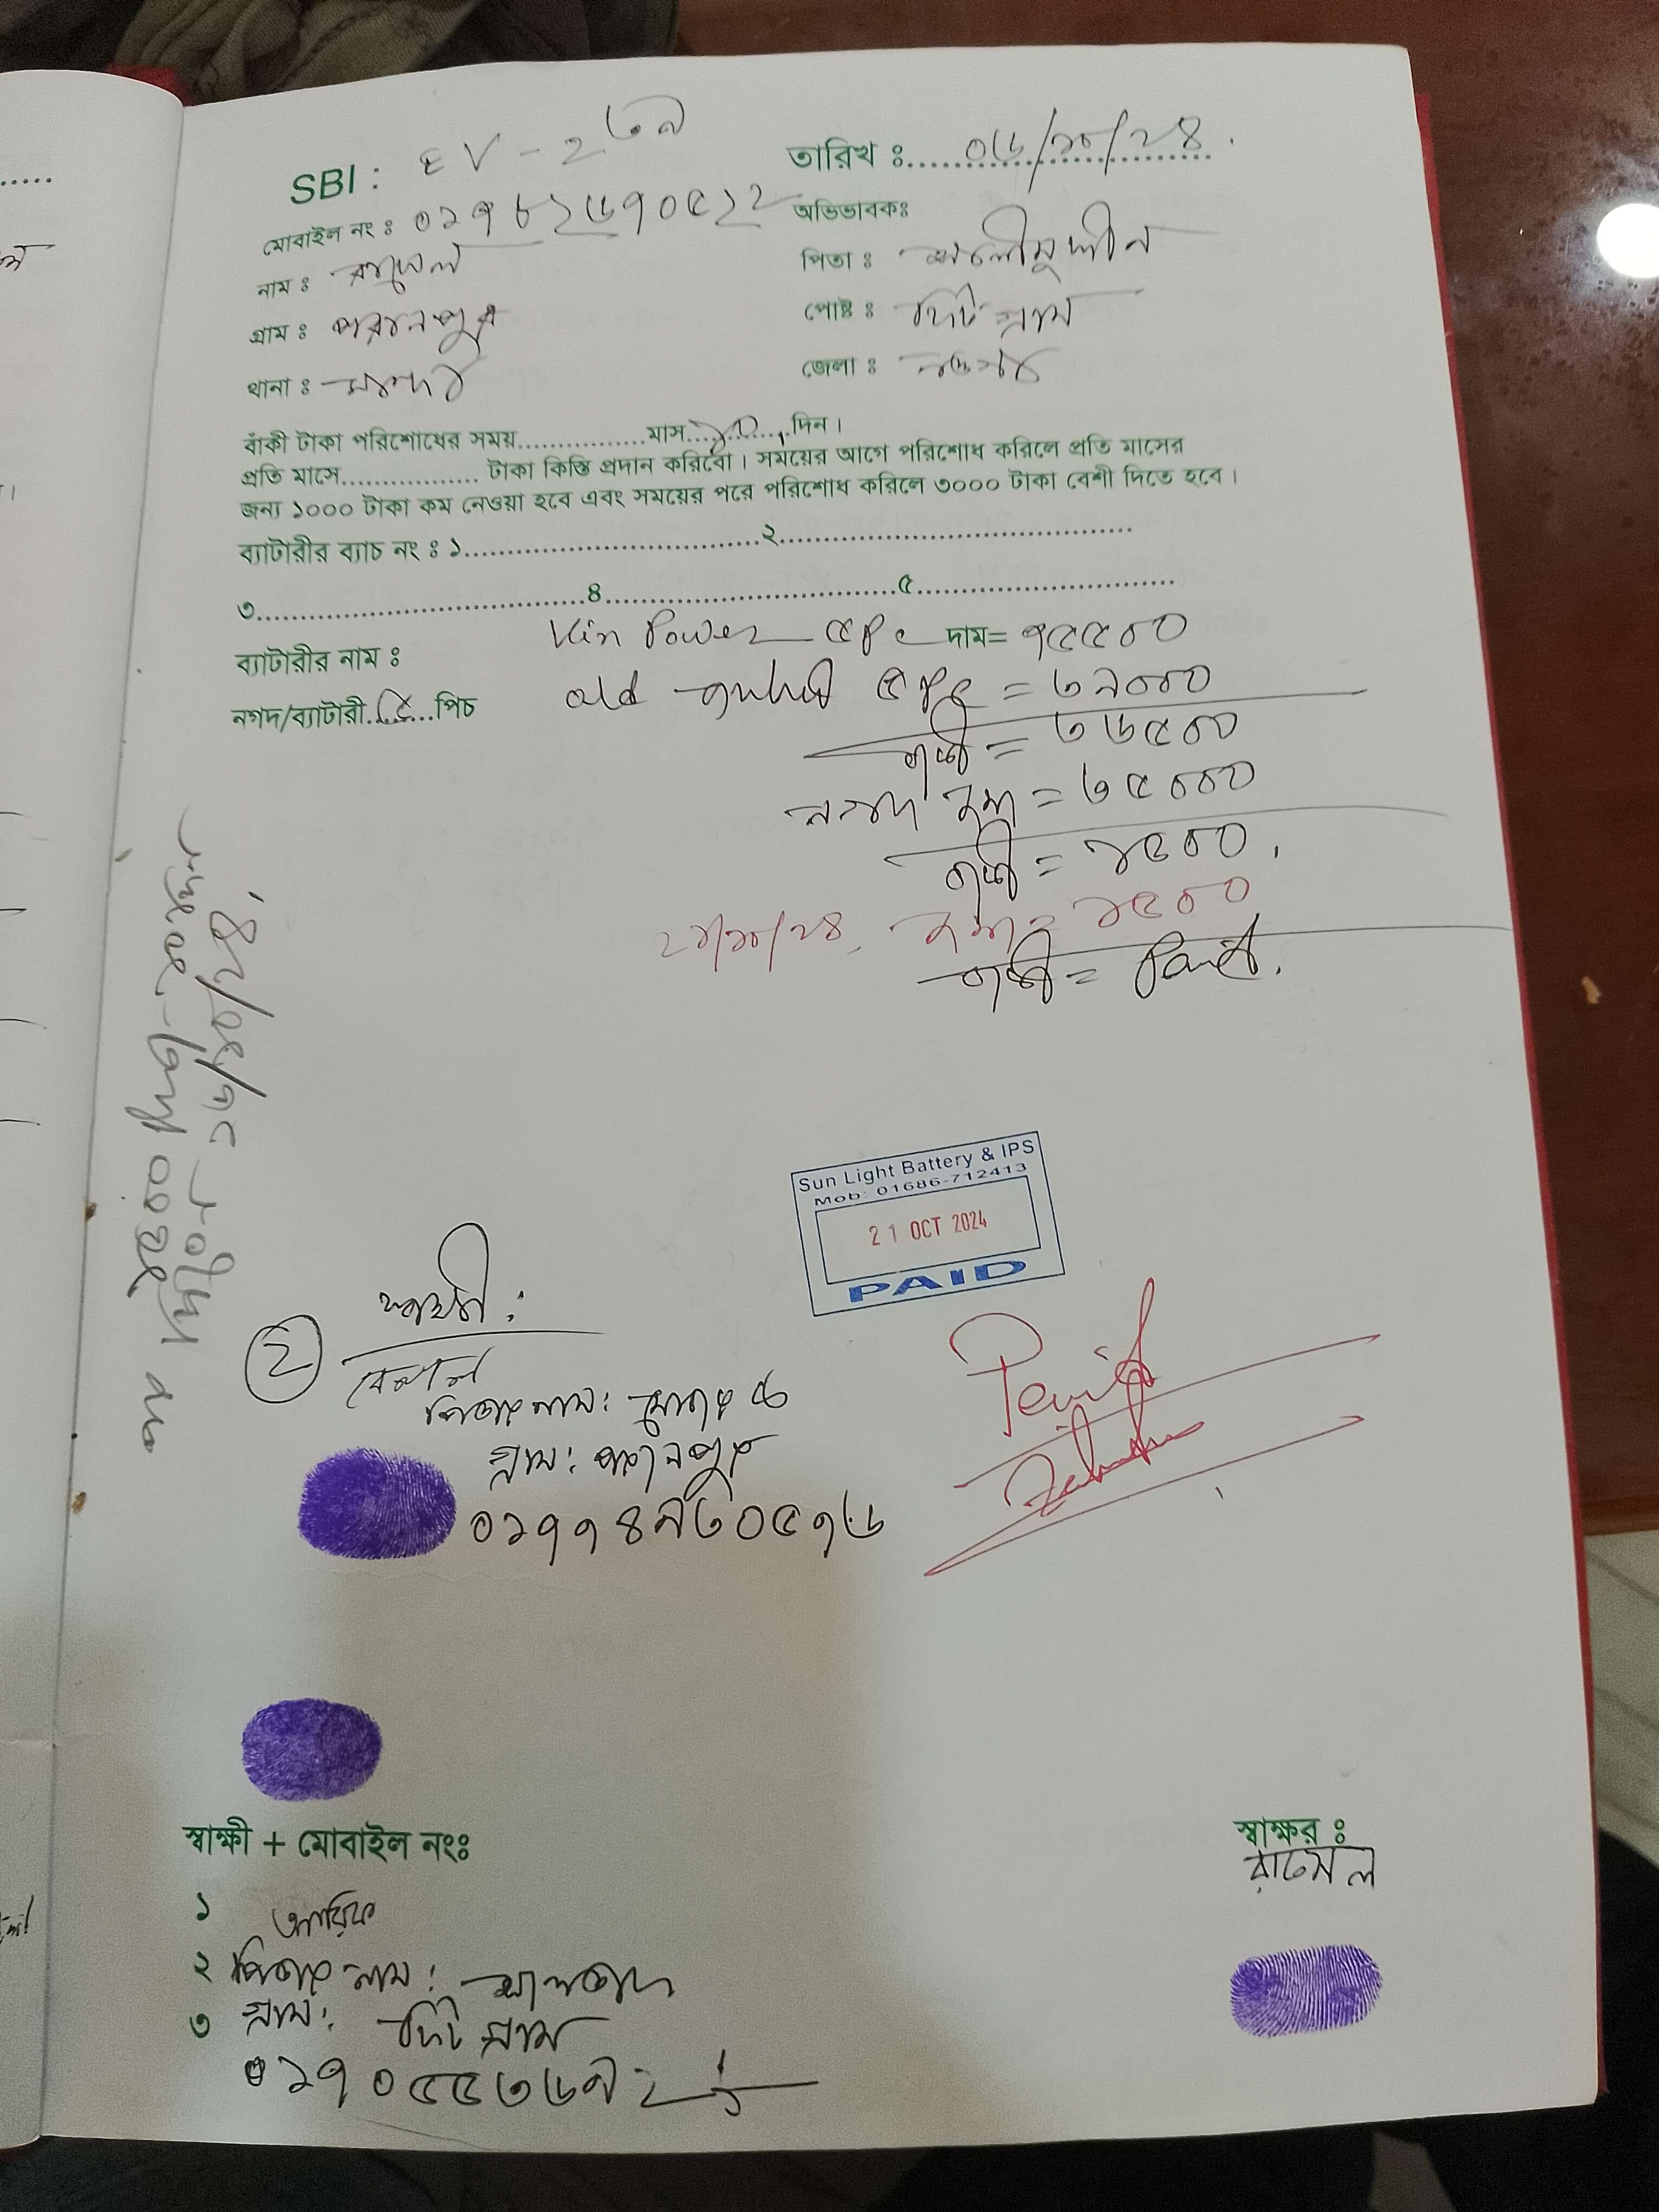 SBI : EV - ২৩৯
তারিখ ঃ ০৬/১০/২৪.
মোবাইল নং ঃ ০১৭৮২৬৭০৫১২
অভিভাবকঃ
নাম ঃ রাসেল
পিতা ঃ
গ্রাম ঃ পরানপুর
পোষ্ট ঃ চিটি গ্রাম
থানা ঃ মান্দা
জেলা ঃ নওগাঁ
বাঁকী টাকা পরিশোধের সময়................মাস...১০...দিন।
প্রতি মাসে................. টাকা কিস্তি প্রদান করিবো। সময়ের আগে পরিশোধ করিলে প্রতি মাসের
জন্য ১০০০ টাকা কম নেওয়া হবে এবং সময়ের পরে পরিশোধ করিলে ৩০০০ টাকা বেশী দিতে হবে।
ব্যাটারীর ব্যাচ নং ঃ ১....................................২...........................................
৩........................................৪....................................৫................................
ব্যাটারীর নাম ঃ Kin Power ৫Pc দাম= ৭৫৫০০
নগদ/ব্যাটারী..৫...পিচ old ৫Pc = ৩৯০০০
বাকী = ৩৬৫০০
নগদ জমা = ৩৫০০০
বাকী = ১৫০০.
২১/১০/২৪, জমা= ১৫০০
বাকী = Paid.
Sun Light Battery & IPS
Mob: 01686-712413
21 OCT 2024
PAID
স্বাক্ষী :
২
বেলাল
পিতার নাম:
গ্রাম: পরানপুর
০১৭৭৪৯৩০৫৭৬
Paid
স্বাক্ষী + মোবাইল নংঃ
স্বাক্ষর ঃ
রাসেল
১ আরিফ
২ পিতার নাম:
৩ গ্রাম: চিটি গ্রাম
০১৭০৫৫৩৬৯২১